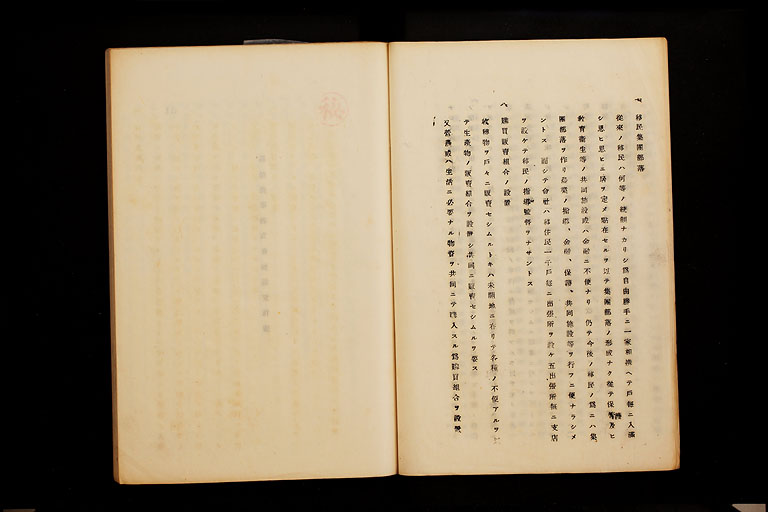 移民集團部落
從來ノ移民ハ何等ノ統制ナカリシ爲自由勝手ニ一家相携ヘテ戶每ニ入滿
シ思ヒ思ヒニ居ヲ定メ點在セルヲ以テ集團部落ノ形成ナク從テ保護及ヒ
敎育衞生等ノ共同施設或ハ金融ニ不便ナリ 仍テ今後ノ移民ノ爲ニハ集
團部落ヲ作リ農業ノ指導、金融、保護、共同施設等ヲ行フニ便ナラシメ
ントス 而シテ會社ハ移住民一千戶每ニ出張所ヲ設ケ五出張所每ニ支店
ヲ設ケテ移民ノ指導監督ヲナサントス
購買販賣組合ノ設置
收穫物ヲ戶々ニ販賣セシムルトキハ未開地ニ在リテ各種ノ不便アルヲ
テ生產物ノ販賣組合ヲ設ケシメ共同ニ販賣セシムルヲ要ス
又營農或ハ生活ニ必要ナル物資ヲ共同ニテ購入スル爲購買組合ヲ設置
秘